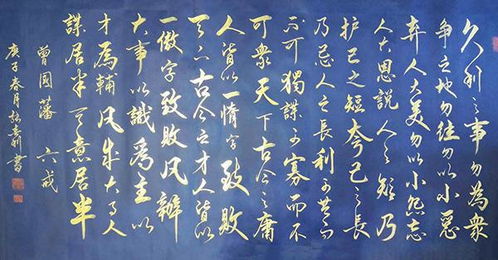 久利之勿為眾
争之地勿往勿以小惡
弃人大美勿以小怨忘
人大恩說人之短乃
护己之短夸己之長
乃忌人之長利可共而
不可獨謀可寡而不
可眾天下古今之庸
人皆以一惰字致敗
天下古今之才人皆以
一傲字致敗凡辦
大事以識為主以
才為輔凡成大事人
謀居半天意居半
曾國藩 六戒
庚子春月 書